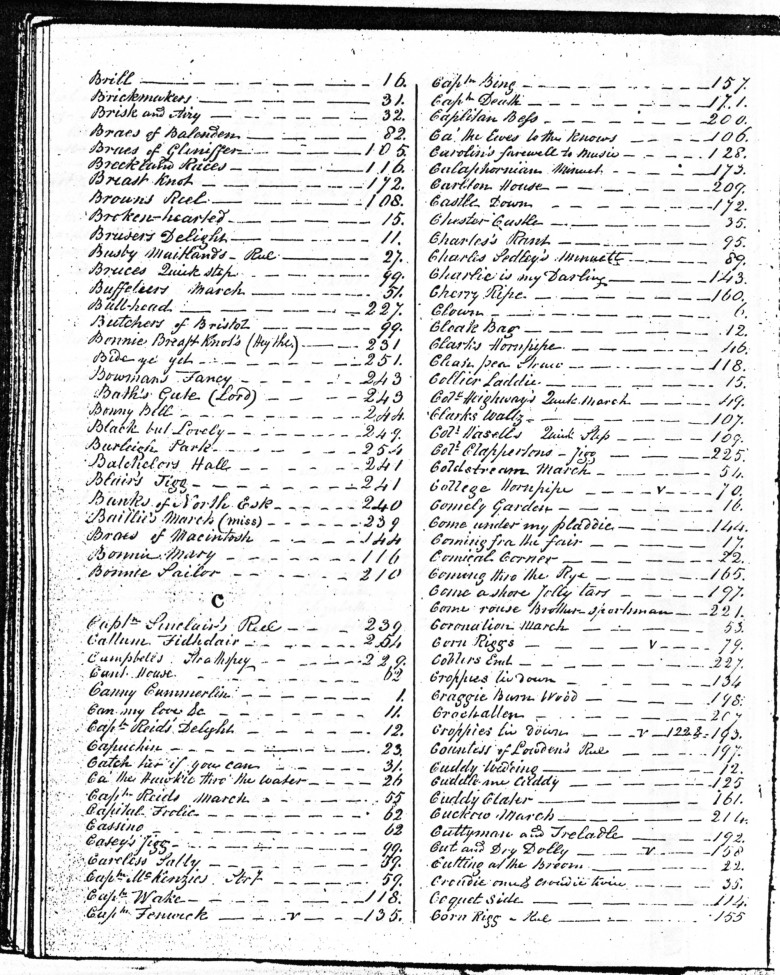 Brill 16.
Brickmakers 31.
Brisk and Airy 32.
Braes of Balenden 82.
Braes of Gleniffer 105.
Breckland Races 116.
Breast Knot 172.
Browns Reel 108.
Broken-hearted 15.
Brusers Delight 11.
Busby Maitlands - Reel 27.
Bruces Quick step 99.
Buffeleers March 51.
Bull-head 227.
Butchers of Bristol 99.
Bonnie Breast Knots (Hey the) 231
Bide ye yet 251.
Bowmans Fancy 243
Bath's Gute (Lord) 243
Bonny Bell 244.
Black but Lovely 249.
Burleigh Park 254
Batchelors Hall 241
Blairs Jigg 241
Banks of North Esk 240
Baillie's March (miss) 239
Braes of Macintosh 144
Bonnie Mary 116
Bonnie Sailor 210
C
Captn Sinclair's Reel 239
Callum Fidhdair 254
Campbell's Strathspey 229.
Cant House 62
Canny Cummerlin 1.
Can my love &c 11.
Captn Reids Delight 12.
Capuchin 23.
Catch her if you can 31.
Ca' the Hawkie thro' the water 26
Captn Reids March 55
Capital Frolic 62
Cassino 62
Casey's Jigg 99.
Careless Sally 39.
Captn McKenzies Strt 59.
Captn Wake 118.
Captn Fenwick v 135.
Captn Bing 157.
Captn Death 171.
Caplitan Bess 200.
Ca' the Ewes to the Knows 106.
Carolin's farewell to Music 128.
Calaphornian Minuet 173.
Carlton House 209.
Castle Down 172.
Chester Castle 35.
Charles's Rant 95.
Charles Sedley's Minuett 89.
Charlie is my Darling 143.
Cherry Ripe 160.
Clown 6.
Cloak Bag 12.
Clarks Hornpipe 46.
Clean pea Straw 118.
Collier Laddie 15.
Coll Heighways Quick March 49.
Clarks Waltz 107.
Coll Hasell's Quick Step 109.
Coll Clappertons - Jigg 225.
Coldstream March 54.
College Hornpipe v 70.
Comely Garden 16.
Come under my pladdie 144.
Coming fra the fair 17.
Comical Corner 22.
Coming thro the Rye 165.
Come ashore Jolly tars 197.
Come rouse Brother sportsman 221.
Coronation March 53.
Corn Riggs v 79.
Coblers End 227.
Croppies lie down 134
Craggie Burn Wood 198.
Crochallen 207
Croppies lie down v 122 & 193.
Countess of Lowden's Reel 197.
Cuddy Wedeing 12.
Cuddle me Cuddy 125
Cuddy Clater 161.
Cuckow March 214.
Cuttyman and Treladle 192.
Cut and Dry Dolly v 158
Cutting at the Broom 22.
Crowdie ones crowdie twice 35.
Coquet Side 114.
Corn Rigg - Reel 155